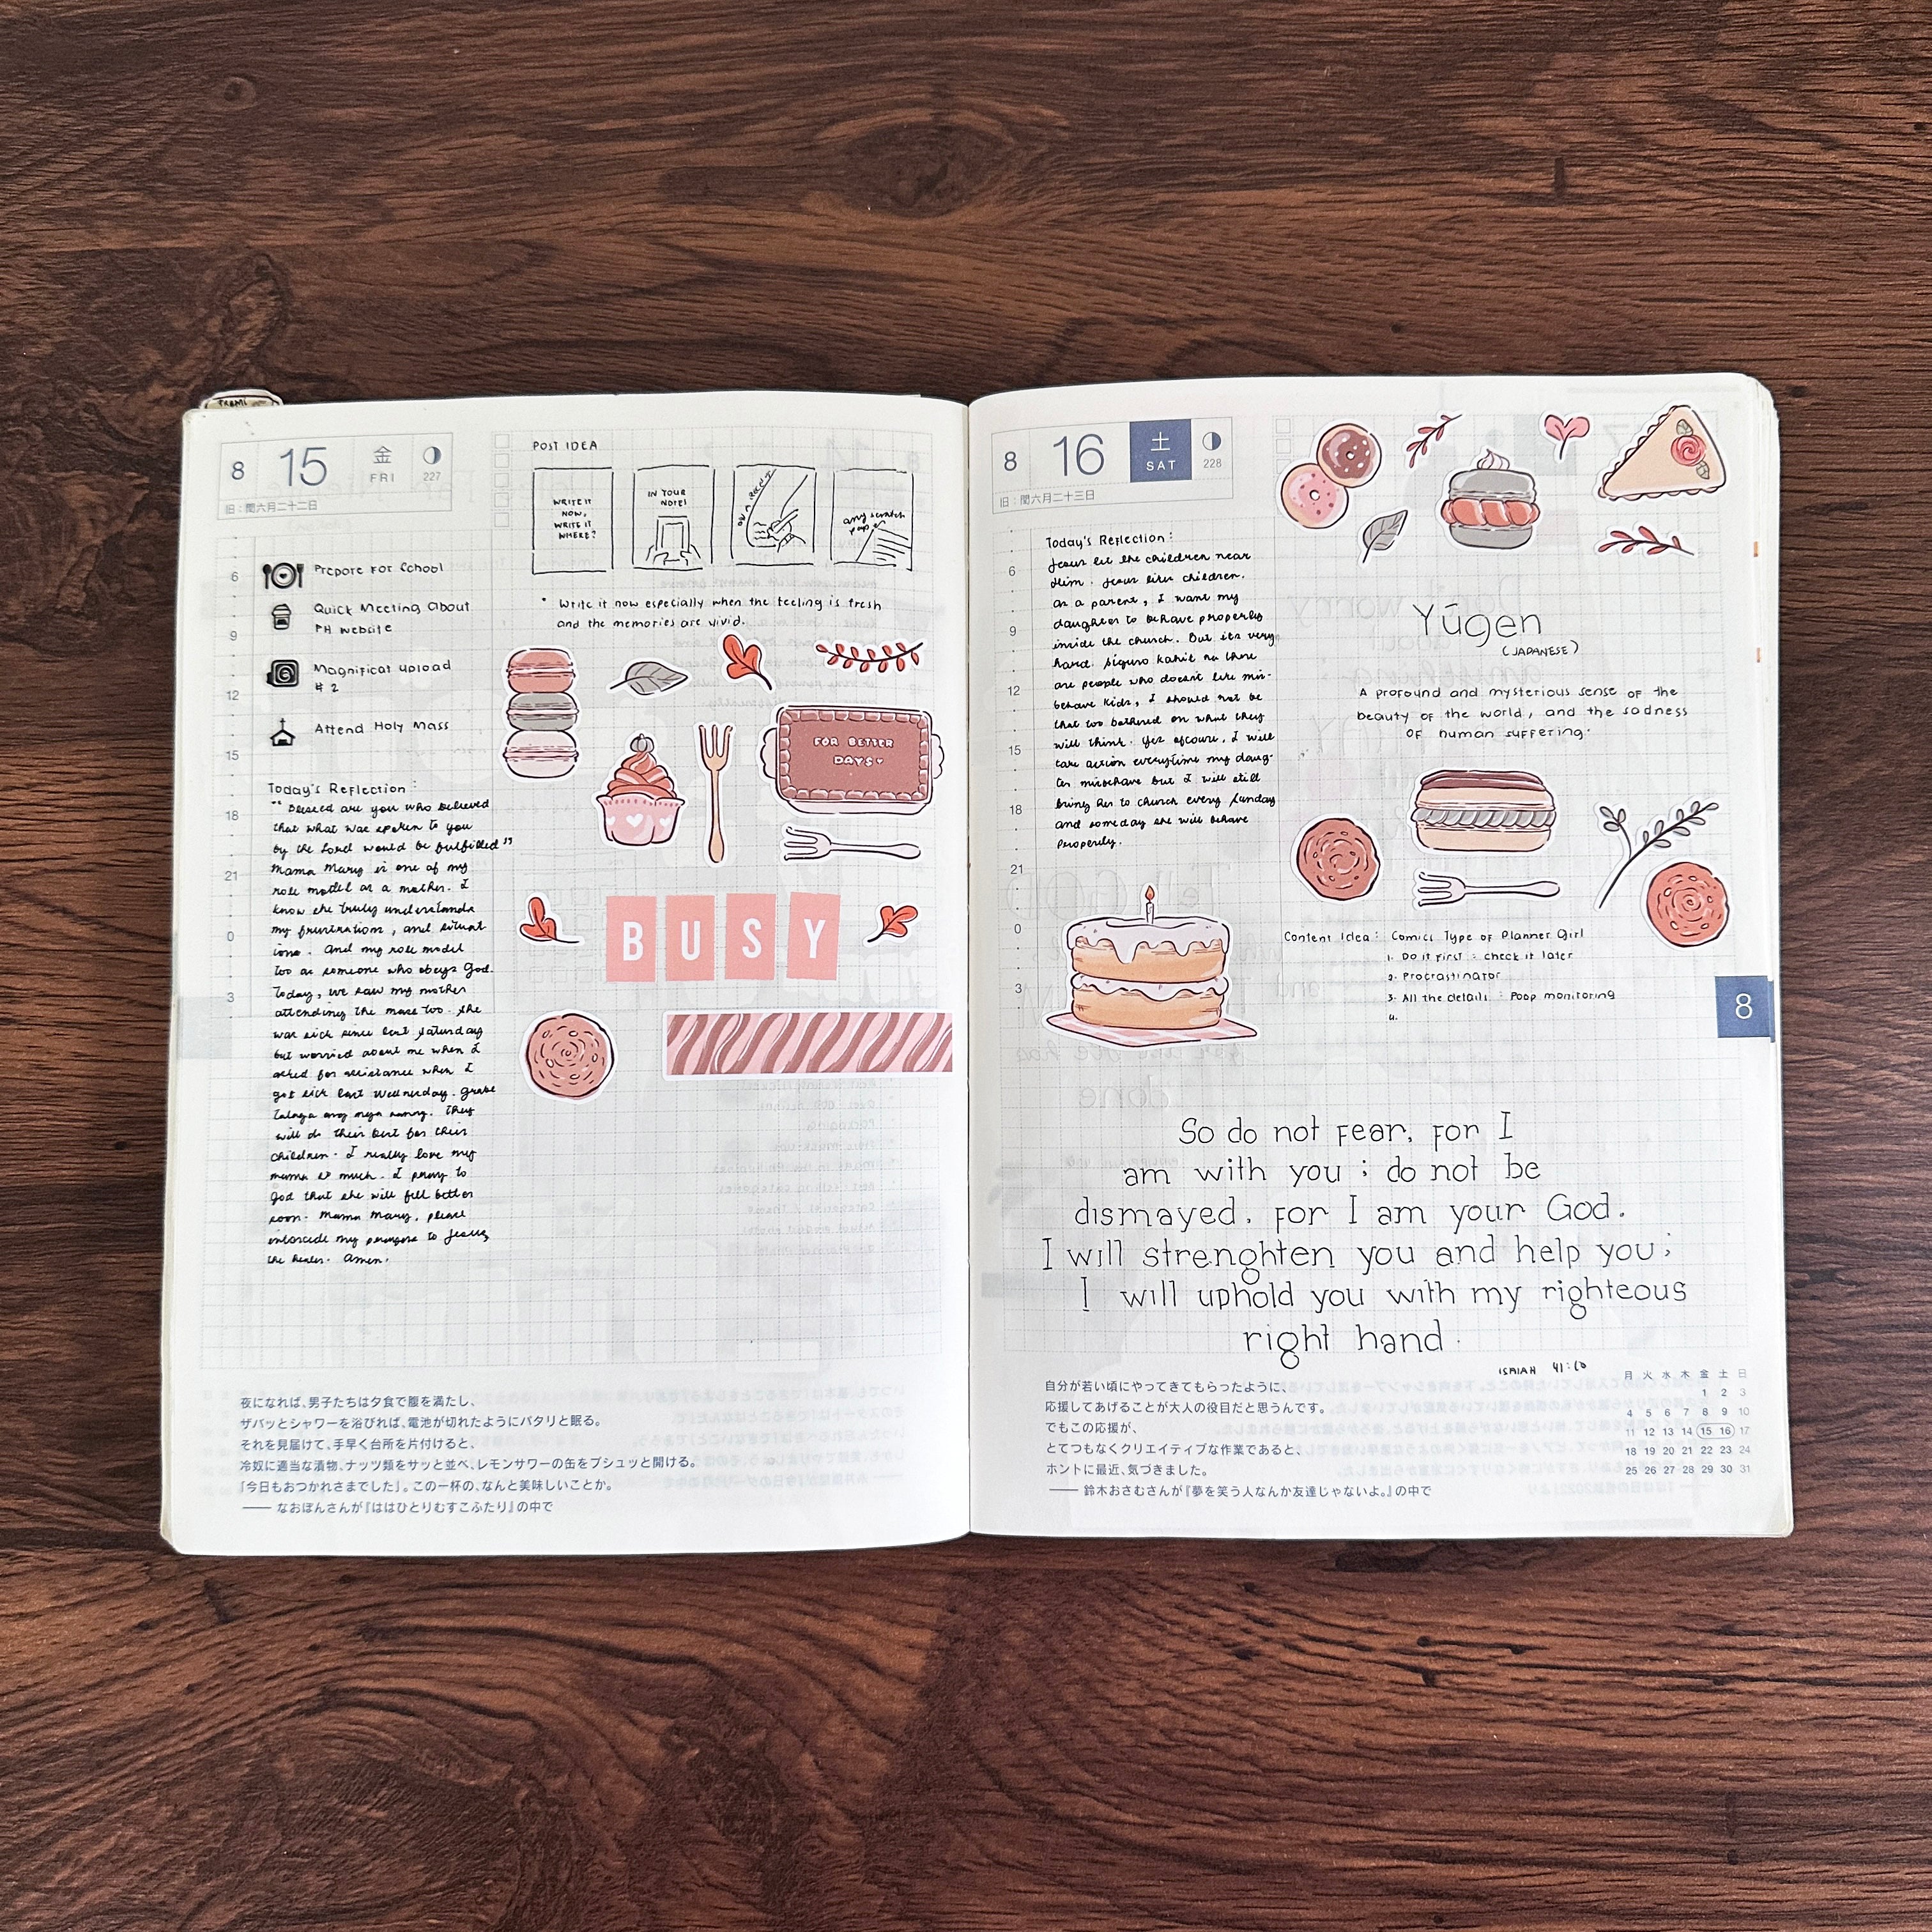 8 15 金 FRI 227
旧:閏六月二十二日
POST IDEA
WRITE IT
NOW,
WRITE IT
WHERE?
IN YOUR
NOTE!
any scratch
paper
* Write it now especially when the feeling is fresh
and the memories are vivid.
6
9
12
15
18
21
0
3
Prepare for School
Quick Meeting about
PH website
Magnificat upload
# 2
Attend Holy Mass
FOR BETTER
DAYS
BUSY
Today's Reflection:
"Blessed are you who believed
that what was spoken to you
by the Lord would be fulfilled"
Mama Mary is one of my
role model as a mother. I
know she truly understands
my frustration, and situat
ions. And my role model
too as someone who obeys God.
Today, we saw my mother
attending the mass too. She
was sick since last Saturday
but worried about me when I
asked for assistance when I
got sick last Wednesday. Grabe
talaga ang mga nanay. They
will do their best for their
children. I really love my
mama so much. I pray to
God that she will fell better
soon. Mama Mary, please
my to Jesus,
the healer. Amen.
夜になれば、男子たちは夕食で腹を満たし、
ザバッとシャワーを浴びれば、電池が切れたようにバタリと眠る。
それを見届けて、手早く台所を片付けると、
冷奴に適当な漬物、ナッツ類をサッと並べ、レモンサワーの缶をプシュッと開ける。
「今日もおつかれさまでした」。この一杯の、なんと美味しいことか。
── なおぽんさんが『ははひとりむすこふたり』の中で
8 16 土 SAT 228
旧:閏六月二十三日
6
9
12
15
18
21
0
3
Today's Reflection:
Jesus let the children near
Him. Jesus likes children.
As a parent, I want my
daughter to behave properly
inside the church. But its very
hard. Siguro kahit na there
are people who doesnt like mis-
behave kids, I should not be
that too bothered on what they
will think. Yes ofcourse, I will
take action everytime my daug-
ter misbehave but I will still
bring her to church every Sunday
and someday she will behave
properly.
Yūgen
(JAPANESE)
A profound and mysterious sense of the
beauty of the world, and the sadness
of human suffering.
Content Idea: Comics Type of Planner Girl
1. Do it first : check it later
2. Procrastinator
3. All the details : Poop monitoring
4.
8
So do not fear, for I
am with you; do not be
dismayed, for I am your God.
I will strenghten you and help you;
I will uphold you with my righteous
right hand.
ISAIAH 41:10
自分が若い頃にやってきてもらったように、
応援してあげることが大人の役目だと思うんです。
でもこの応援が、
とてつもなくクリエイティブな作業であると、
ホントに最近、気づきました。
── 鈴木おさむさんが『夢を笑う人なんか友達じゃないよ。』の中で
月 火 水 木 金 土 日
1 2 3
4 5 6 7 8 9 10
11 12 13 14 15 16 17
18 19 20 21 22 23 24
25 26 27 28 29 30 31